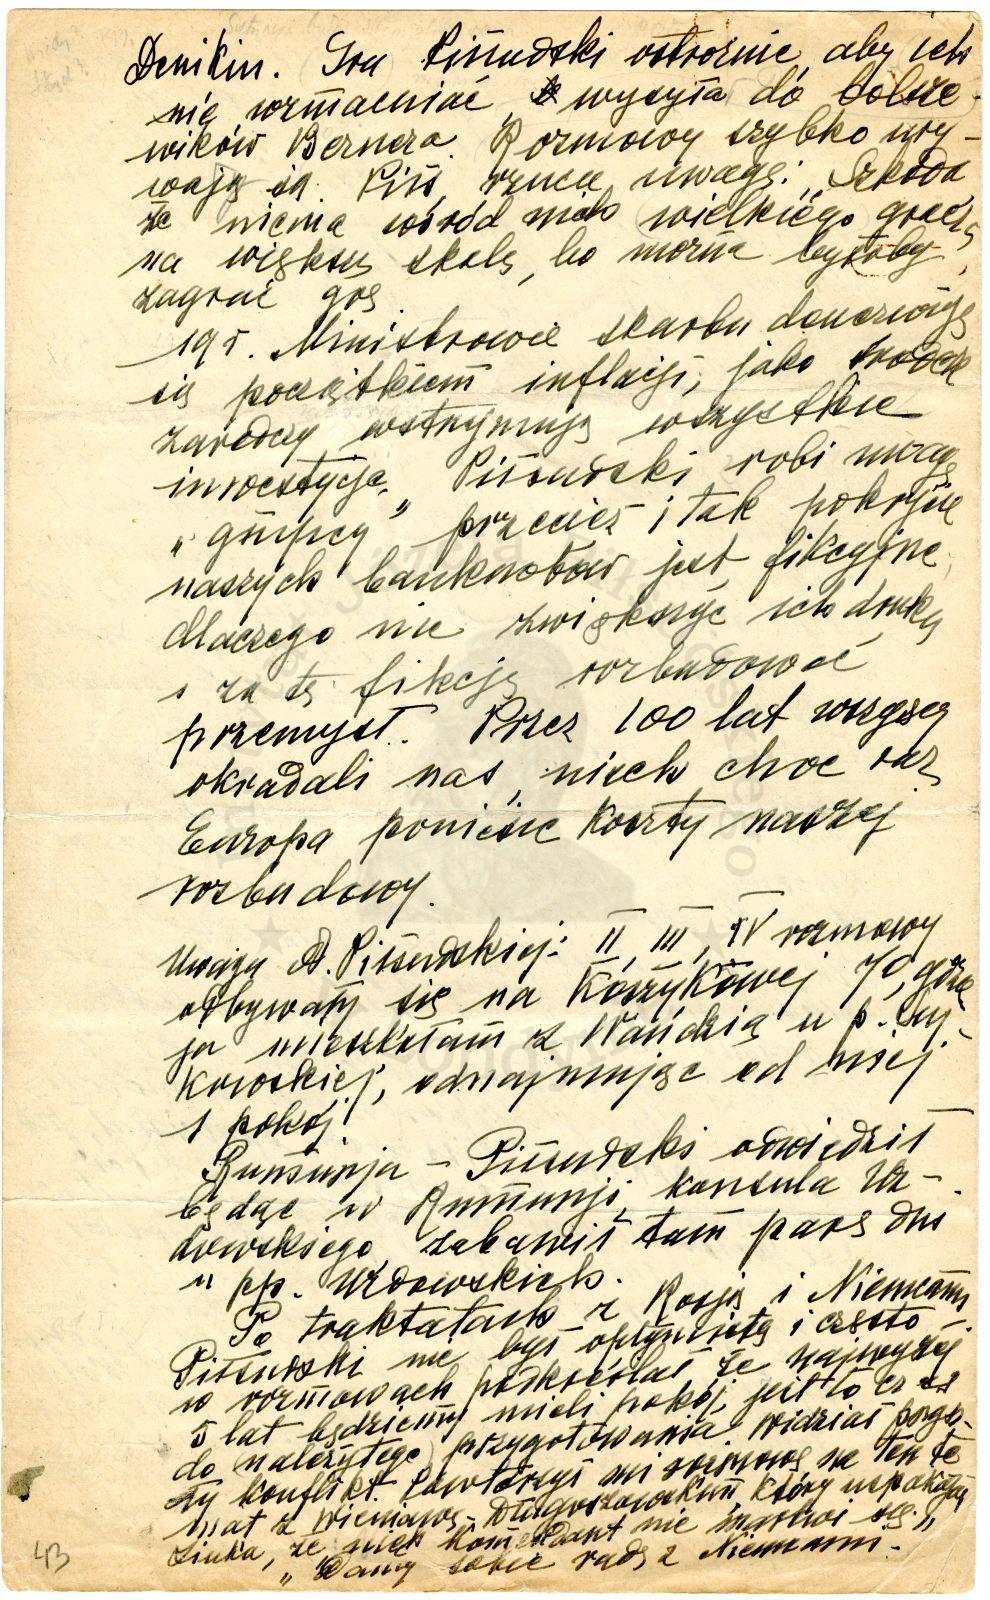 Denikin. Gra Piłsudski ostrożnie, aby ich
nie wzmacniać wysyła do bolsze-
wików Bernera. Rozmowy szybko ury-
wają się. Pił. rzuca uwagę: „Szkoda
że niema wśród nich wielkiego gracza
na większą skalę, bo można byłoby
zagrać grę
19 r. Ministrowie skarbu denerwują
się początkiem inflacji, jako środek
zaradczy wstrzymują wszystkie
inwestycje. Piłsudski robi uwagę
„głupcy” przecież i tak pokrycie
naszych banknotów jest fikcyjne,
dlaczego nie zwiększyć ich druku
i za tę fikcję rozbudować
przemysł. Przez 100 lat wszyscy
okradali nas, niech choc raz
Europa poniesie koszty naszej
rozbudowy.
Uwaga A. Piłsudskiej: II, III, IV rozmowy
odbywały się na Koszykowej 70, gdzie
ja mieszkałam z Wandzią u p.
kowskiej, odnajmując od niej
1 pokój.
Rumunja – Piłsudski odwiedził
będąc w Rumunji, konsula Uz-
dowskiego, zabawił tam parę dni
u pp. Uzdowskich.
Po traktatach z Rosją i Niemcami
Piłsudski nie był optymistą i często
w rozmowach podkreślał że najwyżej
5 lat będziemy mieli pokój, jest to czas
do należytego przygotowania. Widział
konflikt. Powtórzył mi rozmowę na ten te-
mat z Wieniawą-Długoszowskim który uspokajał
Ziuka, że niech Komendant nie martwi się.
„Damy sobie radę z Niemcami.”
43